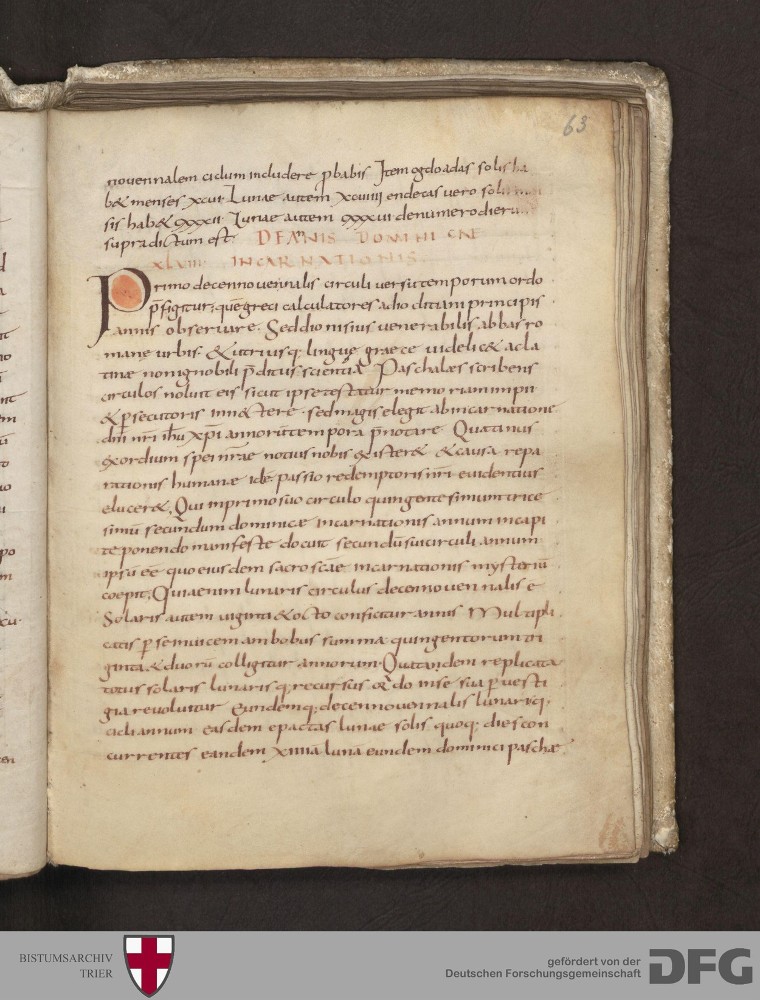 63
nouennalem ciclum includere ꝓbabis Item ogdoadas solis ha
b& menses xcvi Lunae autem xcviiii endecas uero
sis hab& cxxxvi Lunae autem cxxxvii denumero dierū
supradictum est DE ANNIS DOMINICAE
xlviii INCARNATIONIS
Primo decennouennalis circuli uersu temporum ordo
p̄figitur, quē greci calculatores adio clitiani principis
annis obseruare. Sed dionisius uenerabilis abbas ro
mane urbis & utriusq; lingue graece uidelic& ac la
tinae non ignobili p̄ditus scientia Paschales scribens
circulos noluit eis sicut ipse testatur memoriam impii
& ꝑsecutoris inn&tere. sed magis elegit ab incarnatione
dn̄i nr̄i ihū xp̄i annorū tempora p̄notare Quatinus
exordium spei nr̄ae notius nobis exister& & causa repa
rationis humanae idē passio redemptoris nr̄i euidentius
elucer&. Qui in primo suo circulo quingentesimum trice
simū secundum dominicae incarnationis annum in capi
te ponendo manifeste docuit secundū sui circuli annum
ipsū eē quo eiusdem sacroscāe incarnationis mysteriū
coepit; Quia enim lunaris circulus decennouennalis ē
Solaris autem uiginti & octo conficitur annis Multipli
catis ꝑ se inuicem ambobus summa quingentorum tri
ginta & duorū colligitur annorum. Qua tandem replicata
totus solaris lunarisq; recursus ordo in se sua ꝑ uesti
gia reuoluitur Eundemq; decennouennalis lunarisq;
cicli annum easdem epactas lunae solis quoq; dies con
currentes eandem xiiiia luna eundem dominici paschae
BISTUMSARCHIV
TRIER
gefördert von der
Deutschen Forschungsgemeinschaft
DFG